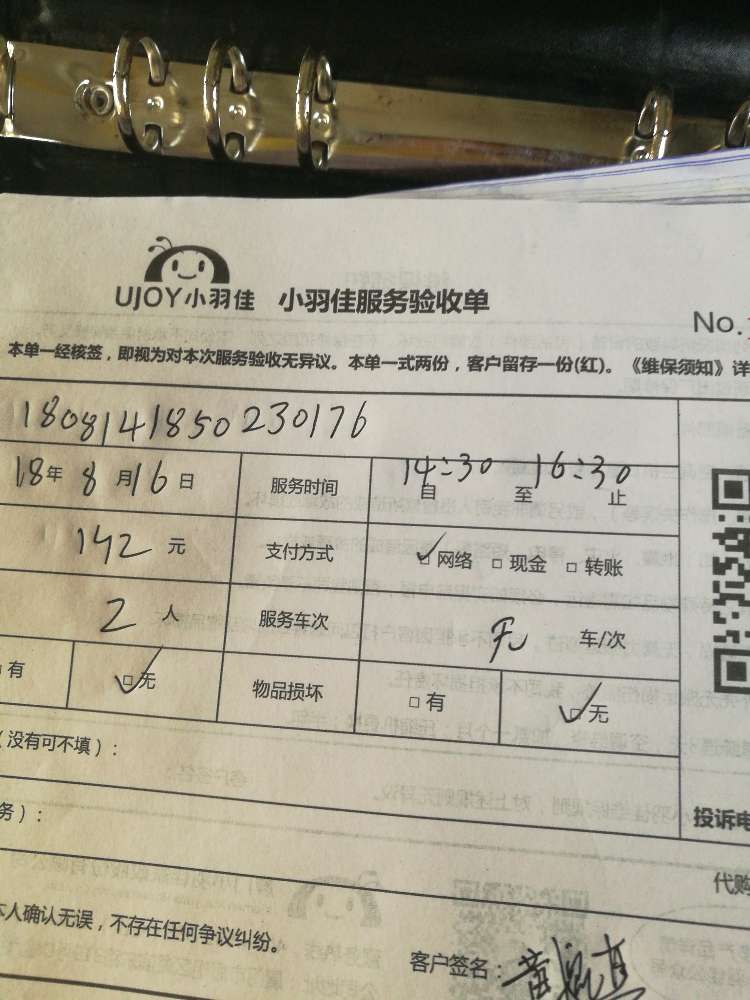 UJOY小羽佳 小羽佳服务验收单
No.
本单一经核签，即视为对本次服务验收无异议。本单一式两份，客户留存一份(红)。《维保须知》详
1808141850230176
18年8月16日 服务时间 14:30 自 至 16:30 止
142元 支付方式 ✓□网络 □现金 □转账
2人 服务车次 车/次
有 ✓□无 物品损坏 □有 ✓□无
（没有可不填）：
务）：
投诉电
代购
本人确认无误，不存在任何争议纠纷。
客户签名：黄